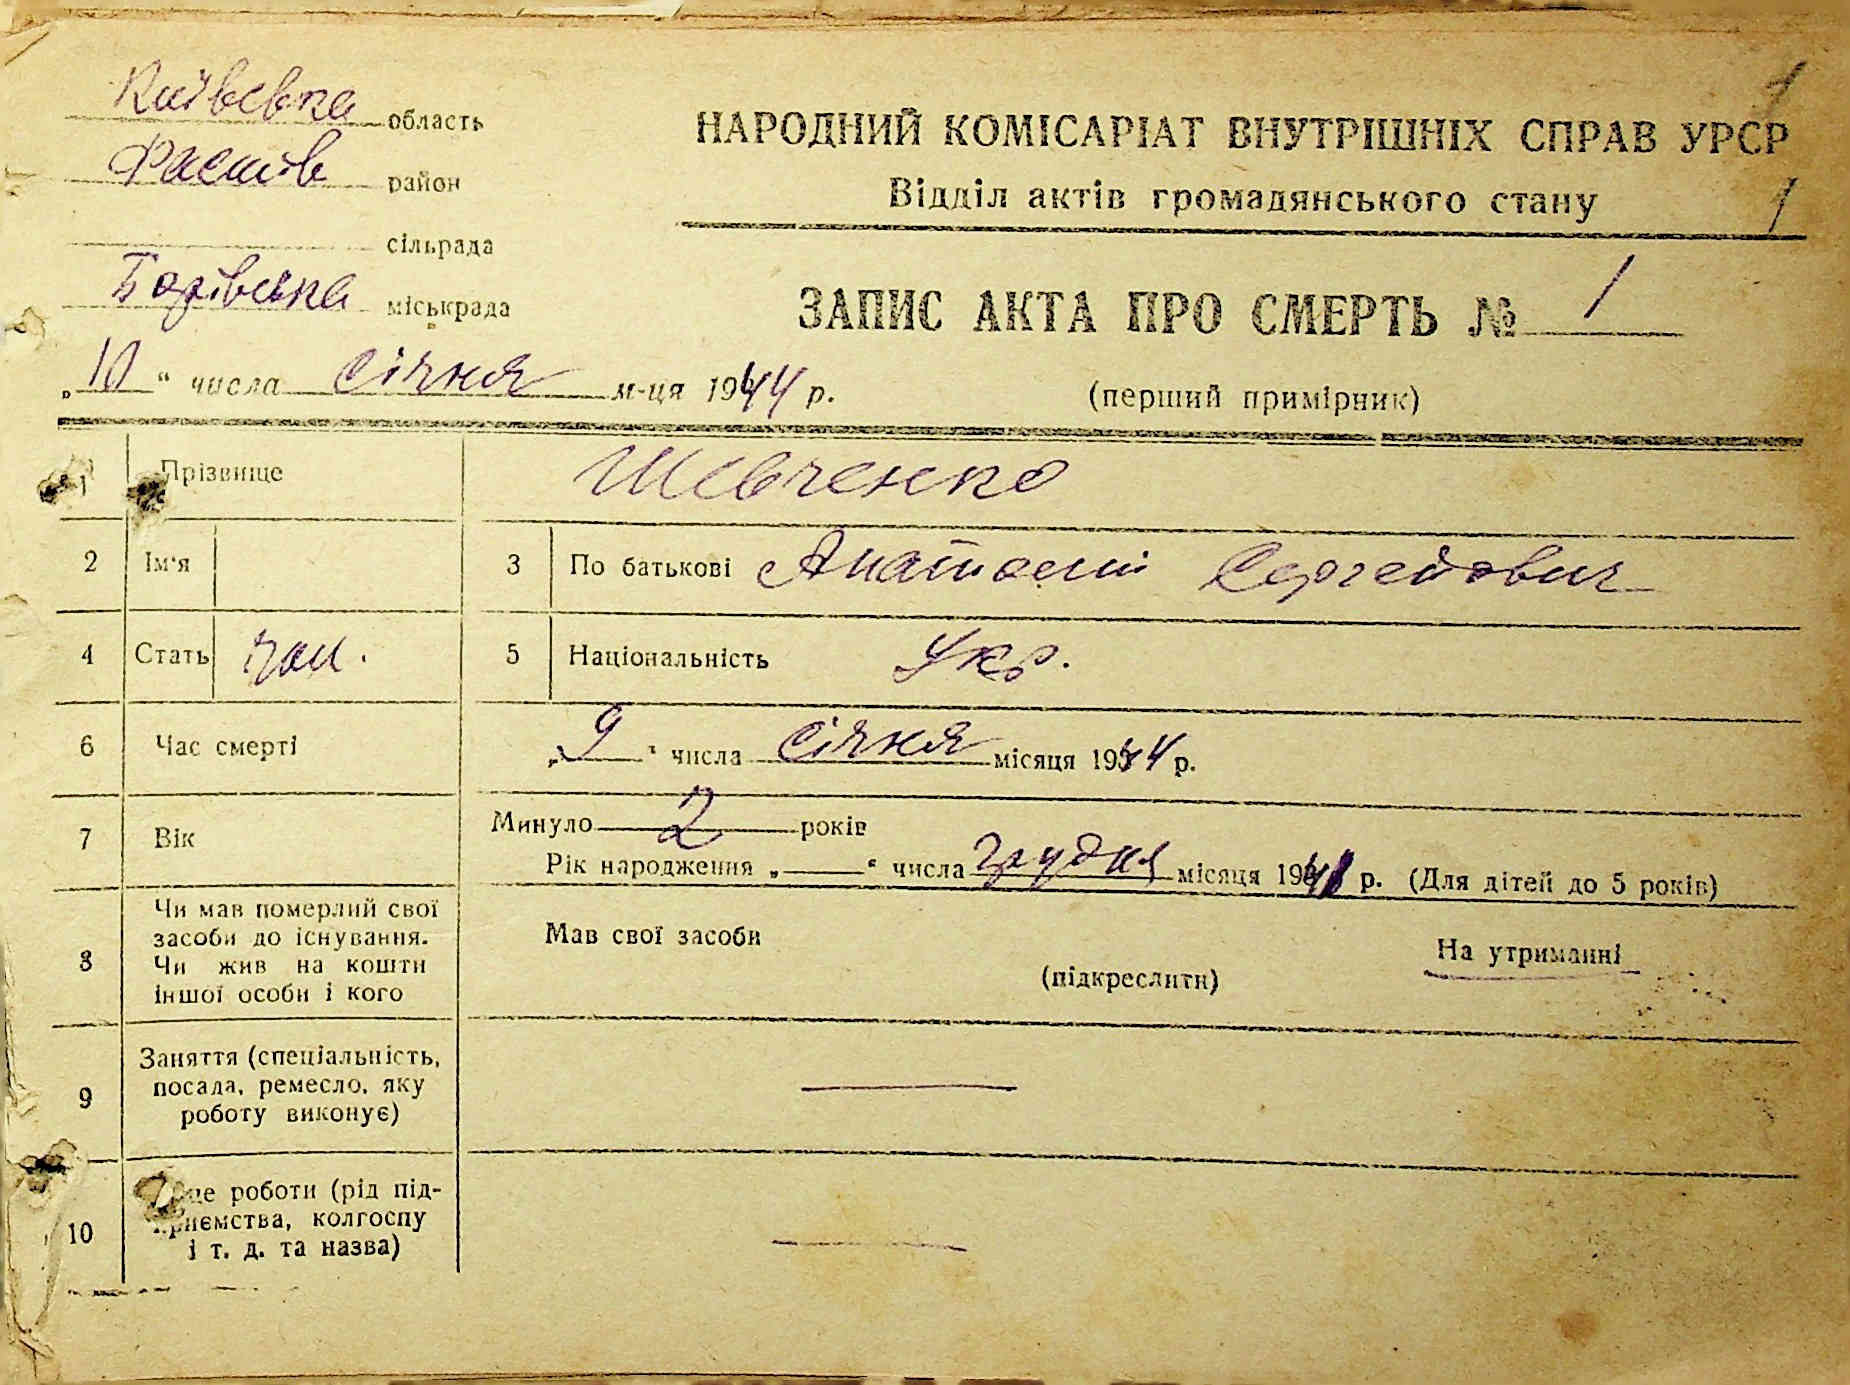 1
Київська область
НАРОДНИЙ КОМІСАРІАТ ВНУТРІШНІХ СПРАВ УРСР
Фастів район
Відділ актів громадянського стану
1
сільрада
Борівська міськрада
ЗАПИС АКТА ПРО СМЕРТЬ № 1
„10“ числа січня м-ця 1944 р.
(перший примірник)
1 Прізвище Шевченко
2 Ім'я 3 По батькові Анатолий Сергейович
4 Стать чол. 5 Національність Укр.
6 Час смерті „9“ числа січня місяця 1944 р.
7 Вік Минуло 2 років
Рік народження „ “ числа грудня місяця 1941 р. (Для дітей до 5 років)
8 Чи мав померлий свої
засоби до існування.
Чи жив на кошти
іншої особи і кого
Мав свої засоби
(підкреслити)
На утриманні
9 Заняття (спеціальність,
посада, ремесло, яку
роботу виконує)
10 це роботи (рід під-
приємства, колгоспу
і т. д. та назва)